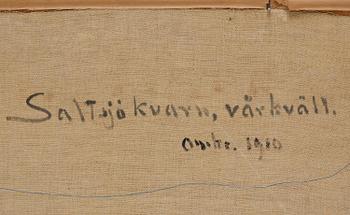 Saltsjökvarn, vårkväll.
1910